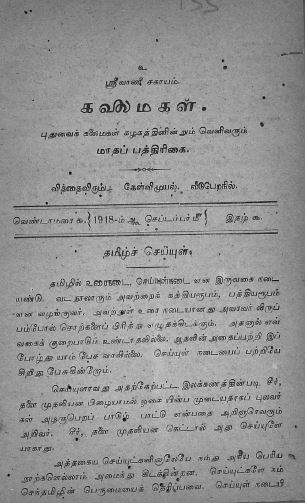 உ
ஸ்ரீவாணீ சகாயம்.
கலைமகள்.
புதுவைக் கலைமகள் கழகத்தினின்றும் வெளிவரும்
மாதப் பத்திரிகை.
வித்தைவிரும்பு. கேள்விமுயல். வீடுபேறுநில்.
வெண்டாமரை ௬. 1918-ம் ௵ செப்டம்பர் ௴ இதழ் ௬.
தமிழ்ச் செய்யுள்.
தமிழில் உரைநடை, செய்யுள்நடை என இருவகை நடை
யுண்டு. வட நூலாரும் அவற்றைக் கத்தியரூபம், பத்தியரூபம்
என வழங்குவர். அவற்றுள் உரை நடையானது அவரவர் விருப்
பம்போல் சொற்களைப் பிரித்து எழுதக்கிடக்கும். அதனால் எவ்
வகைக் குறைபாடும் உண்டாதலில்லை. ஆதலின் அதைப்பற்றி இப்
போழ்து யாம் பேச வரவில்லை. செய்யுள் நடையைப் பற்றியே
சிறிது பேசுகின்றோம்.
செய்யுளாவது அதற்கேற்பட்ட இலக்கணத்தின்படி, சீர்,
தளை முதலியன பிழையாமல் நலை பயின்ற முடையதாகப் புலவர்
கள் அழகுபெறப் பாடும் பாட்டு என்பதை அறிஞர்யாவரும்
அறிவர். சீர், தளை முதலியன கெட்டால் அது செய்யுளே
யாகாது.
அத்தகைய செய்யுட்களினாலேயே நந்து அரிய பெரிய
நூற்களெல்லாம் அமைந்து கிடக்கின்றன. செய்யுட்களே நம்
செந்தமிழின் பெருமையைத் தெரிப்பவை. செய்யுள் நடையி